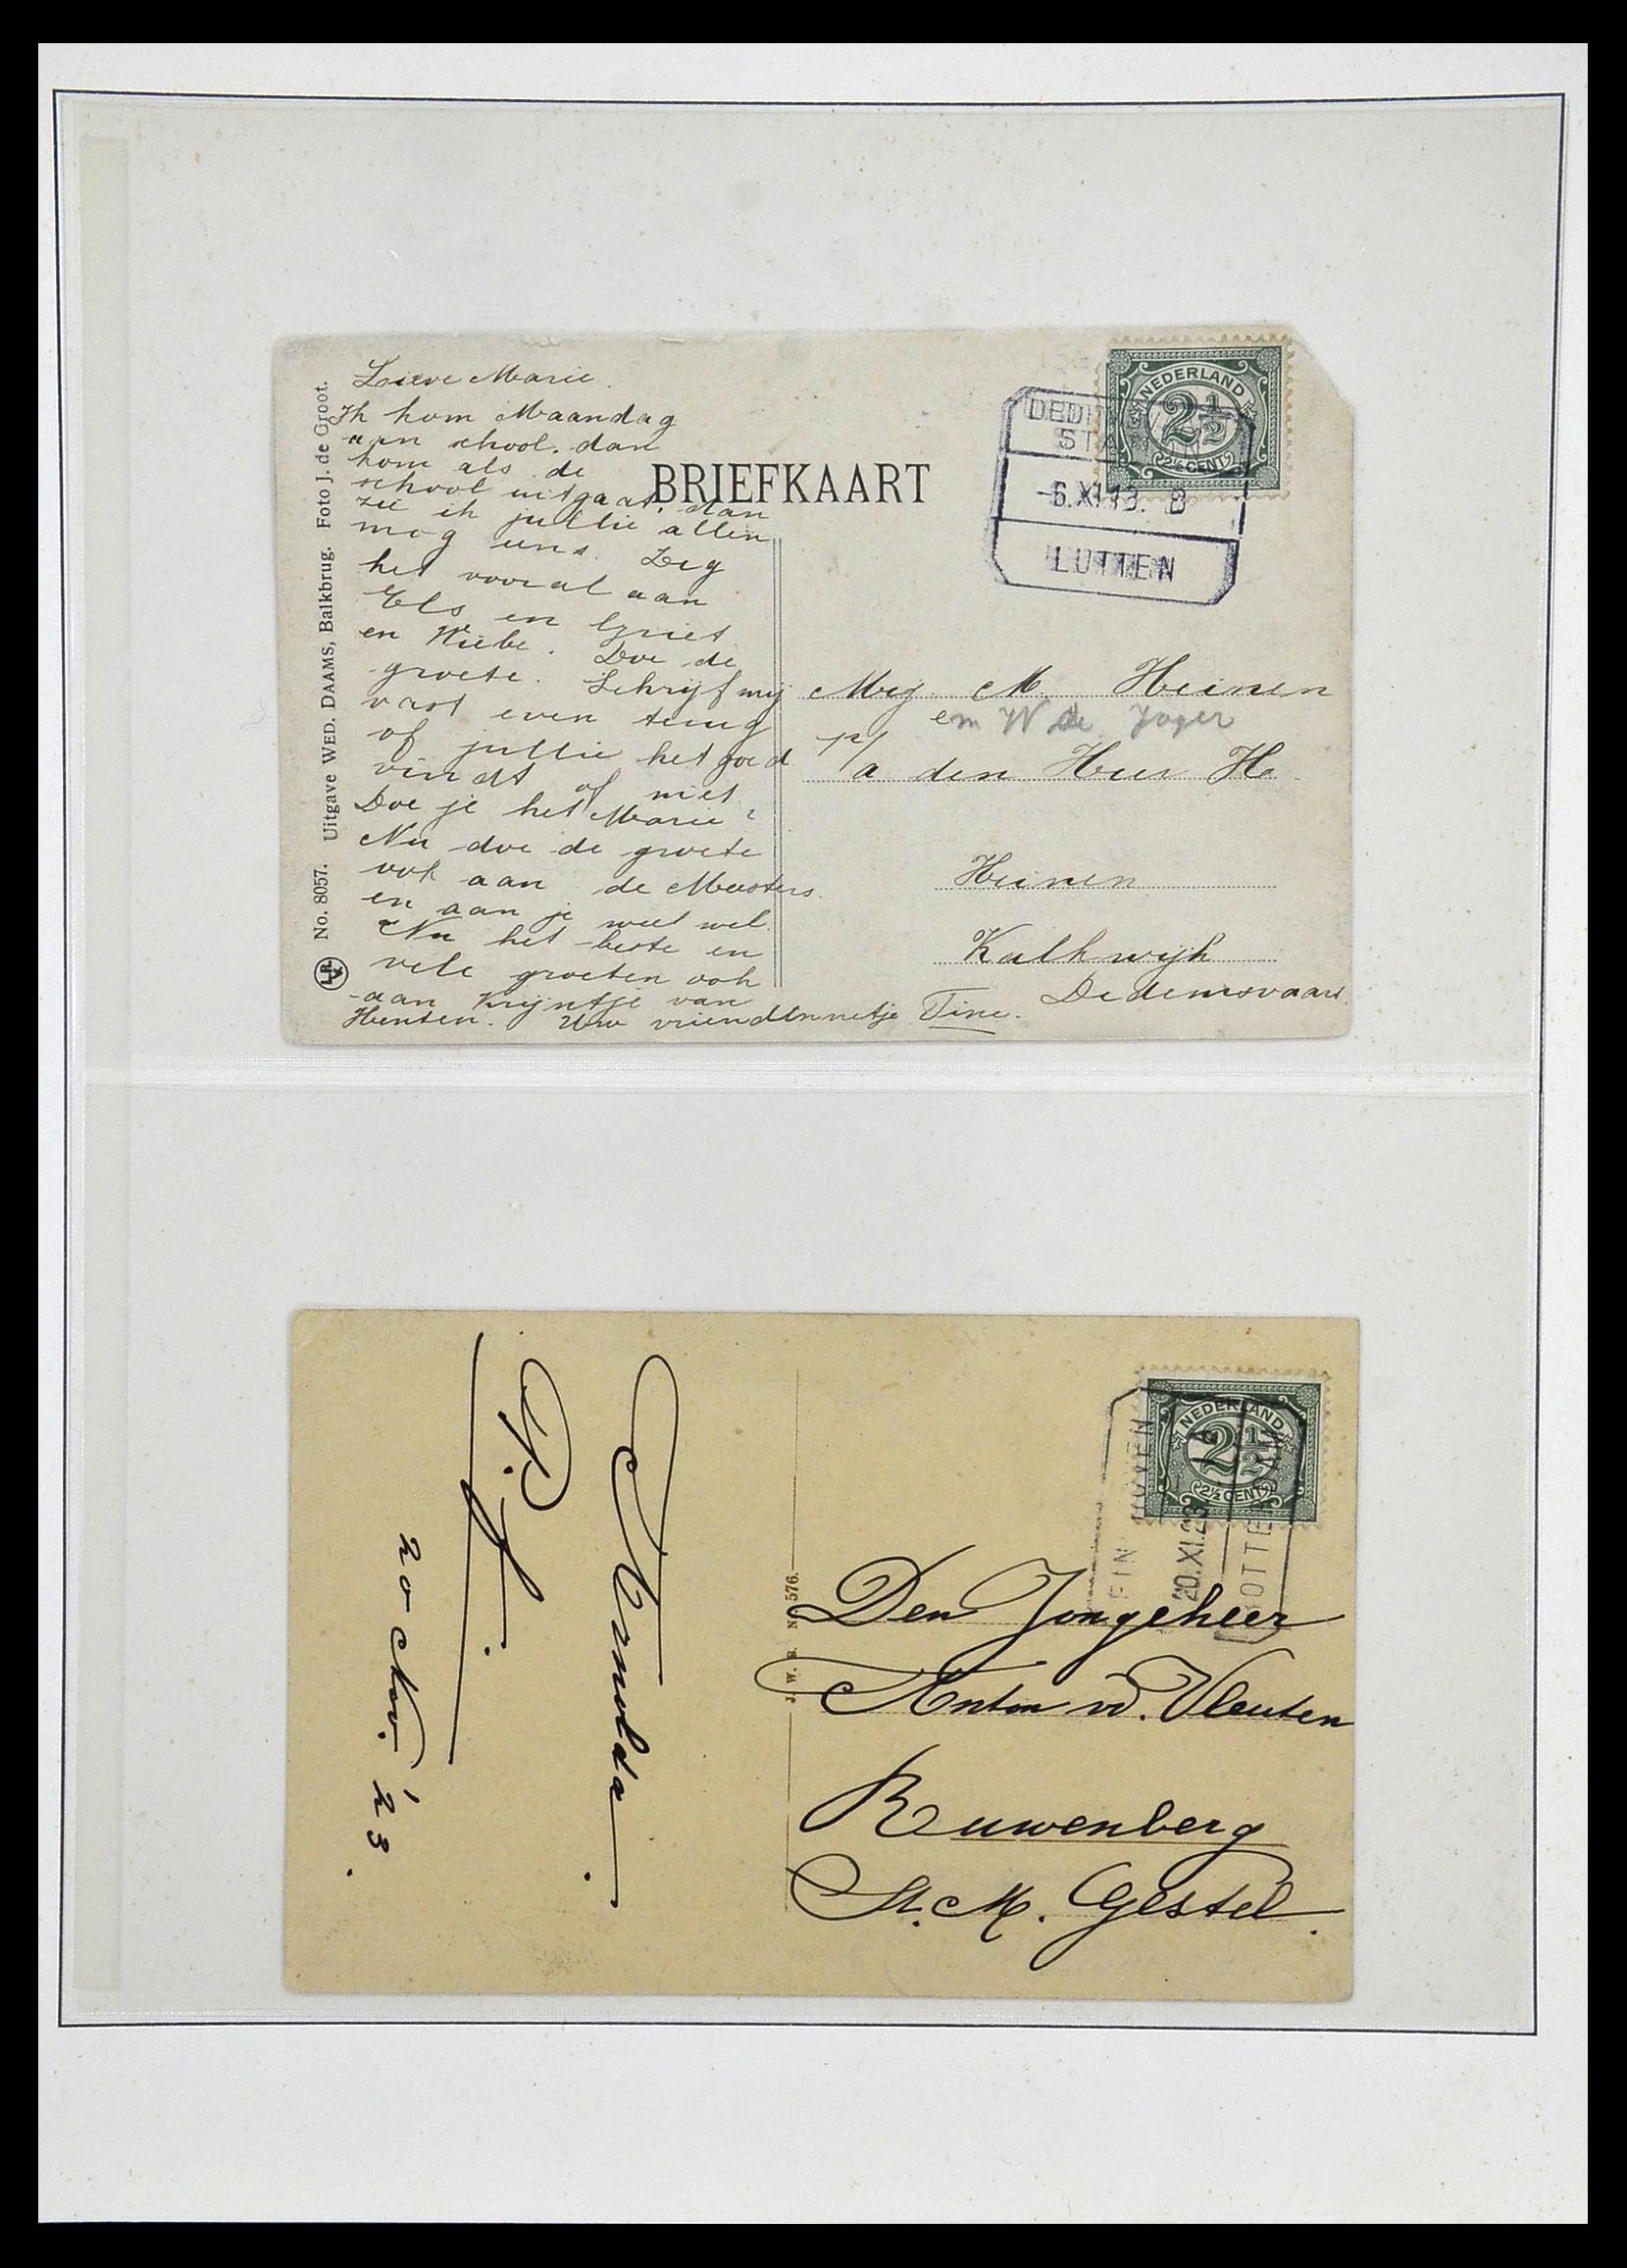 Lieve Marie.
Ik kom Maandag
aan school. dan
kom als de
school uitgaat, dan
zie ik jullie allen
mog eens. Zeg
het vooral aan
Els en Griet
en Wiebe. Doe de
groete. Schrijf mij
vast even terug
of jullie het goed
vindt of niet
Doe je het Marie?
Nu doe de groete
ook aan de Meesters.
en aan je weet wel.
Nu het beste en
vele groeten ook
aan Krijntje van
Uw vriendinnetje Tine.
No. 8057. Uitgave WED. DAAMS, Balkbrug. Foto J. de Groot.
BRIEFKAART
NEDERLAND
2½
2½ CENT
-6.XI.13. B
LUTTEN
Mej. M. Heinen
en W de Jager
p/a den Heer H
Heinen
Kalkwijk
Dedemsvaart.
NEDERLAND
2½
2½ CENT
20.XI.23
J. W. B. No 576.
Den Jongeheer
Anton vd. Vleuten
Ruwenberg
St. M. Gestel.
Arnolda.
P.f.
20 Nov. '23.